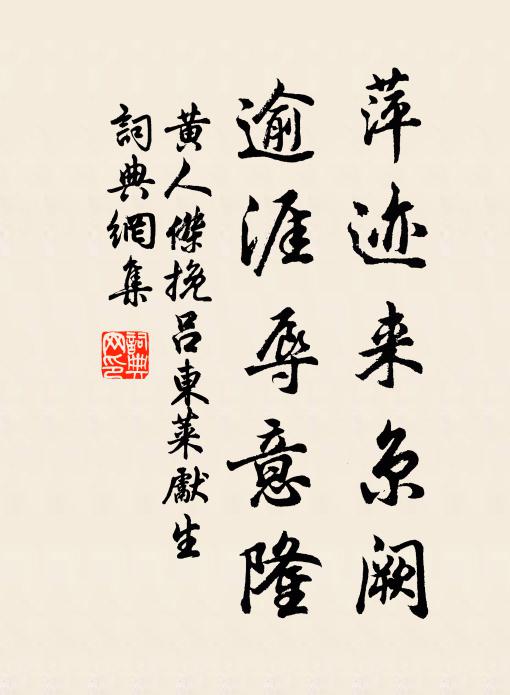 萍迹来京阙
逾涯辱意隆
黄人傑挽吕東萊獻生
詞典網集
詞典网印